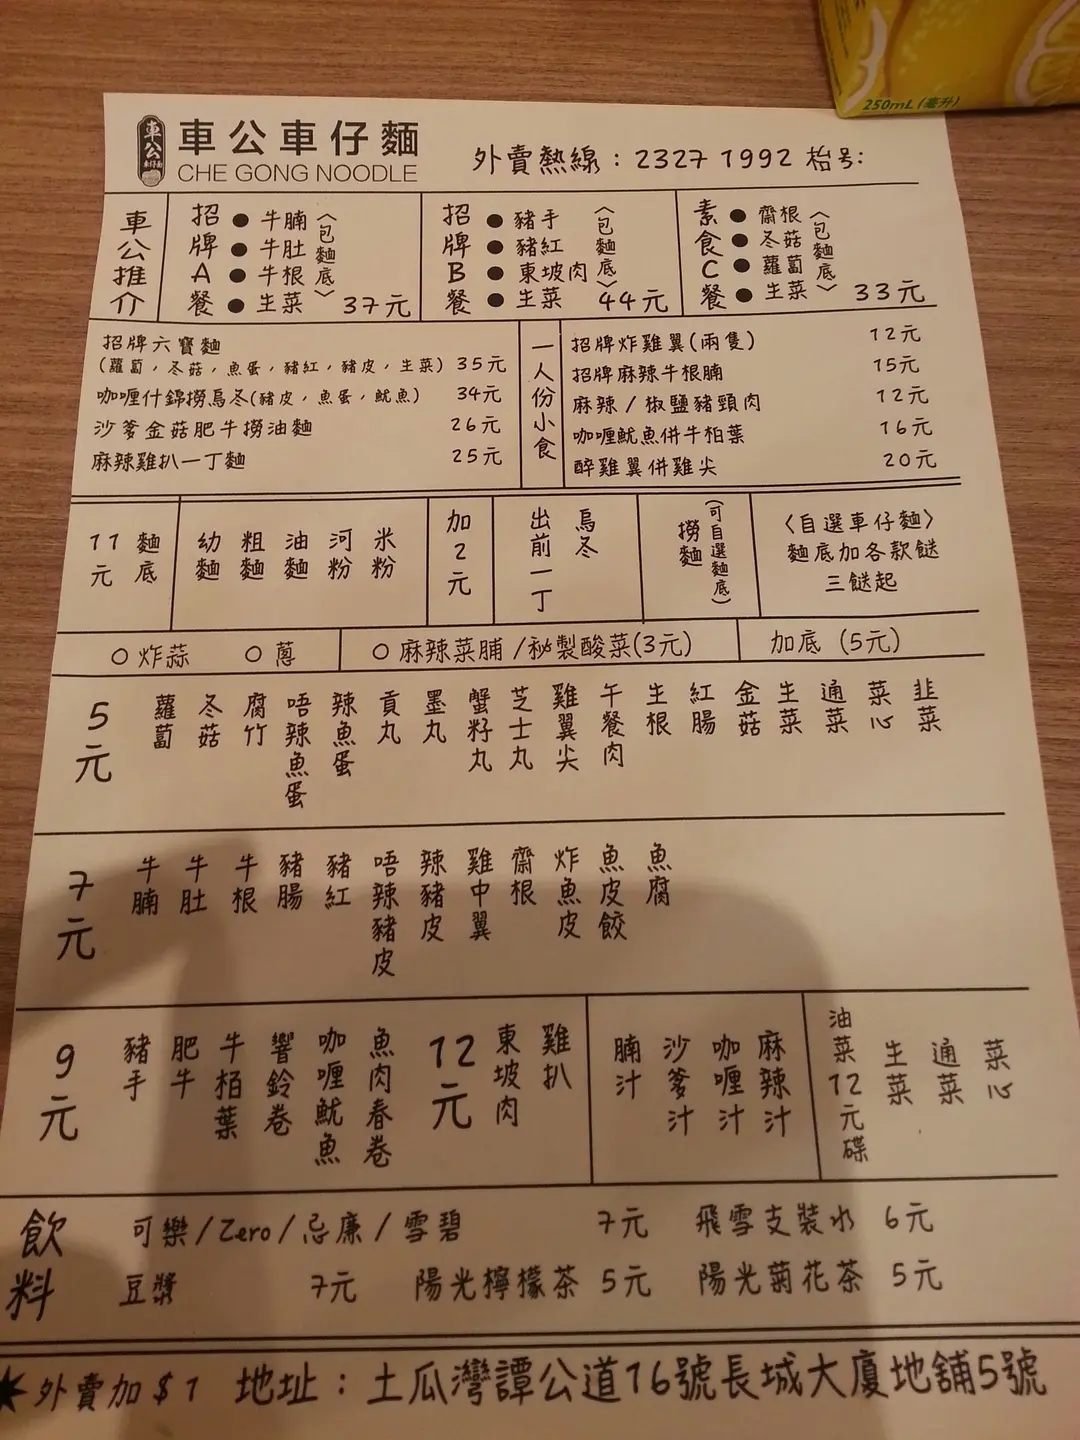 250mL(毫升)
車公車仔麵
車公車仔麵
CHE GONG NOODLE
外賣熱線：2327 1992 枱号：
車公推介
招牌A餐
● 牛腩
● 牛肚
● 牛根
● 生菜
〈包麵底〉
37元
招牌B餐
● 豬手
● 豬紅
● 東坡肉
● 生菜
〈包麵底〉
44元
素食C餐
● 齋根
● 冬菇
● 蘿蔔
● 生菜
〈包麵底〉
33元
招牌六寶麵
(蘿蔔，冬菇，魚蛋，豬紅，豬皮，生菜) 35元
咖喱什錦撈烏冬(豬皮，魚蛋，魷魚) 34元
沙爹金菇肥牛撈油麵 26元
麻辣雞扒一丁麵 25元
一人份小食
招牌炸雞翼(兩隻) 12元
招牌麻辣牛根腩 15元
麻辣/椒鹽豬頸肉 12元
咖喱魷魚併牛柏葉 16元
醉雞翼併雞尖 20元
11元
麵底
幼麵
粗麵
油麵
河粉
米粉
加2元
出前一丁
烏冬
撈麵
(可自選麵底)
〈自選車仔麵〉
麵底加各款餸
三餸起
○ 炸蒜 ○ 蔥
○ 麻辣菜脯/秘製酸菜(3元)
加底 (5元)
5元
蘿蔔
冬菇
腐竹
唔辣魚蛋
辣魚蛋
貢丸
墨丸
蟹籽丸
芝士丸
雞翼尖
午餐肉
生根
紅腸
金菇
生菜
通菜
菜心
韭菜
7元
牛腩
牛肚
牛根
豬腸
豬紅
唔辣豬皮
辣豬皮
雞中翼
齋根
炸魚皮
魚皮餃
魚腐
9元
豬手
肥牛
牛栢葉
響鈴卷
咖喱魷魚
魚肉春卷
12元
東坡肉
雞扒
腩汁
沙爹汁
咖喱汁
麻辣汁
油菜12元碟
生菜
通菜
菜心
飲料
可樂/Zero/忌廉/雪碧 7元 飛雪支裝水 6元
豆漿 7元 陽光檸檬茶 5元 陽光菊花茶 5元
★外賣加$1 地址：土瓜灣譚公道16號長城大廈地舖5號